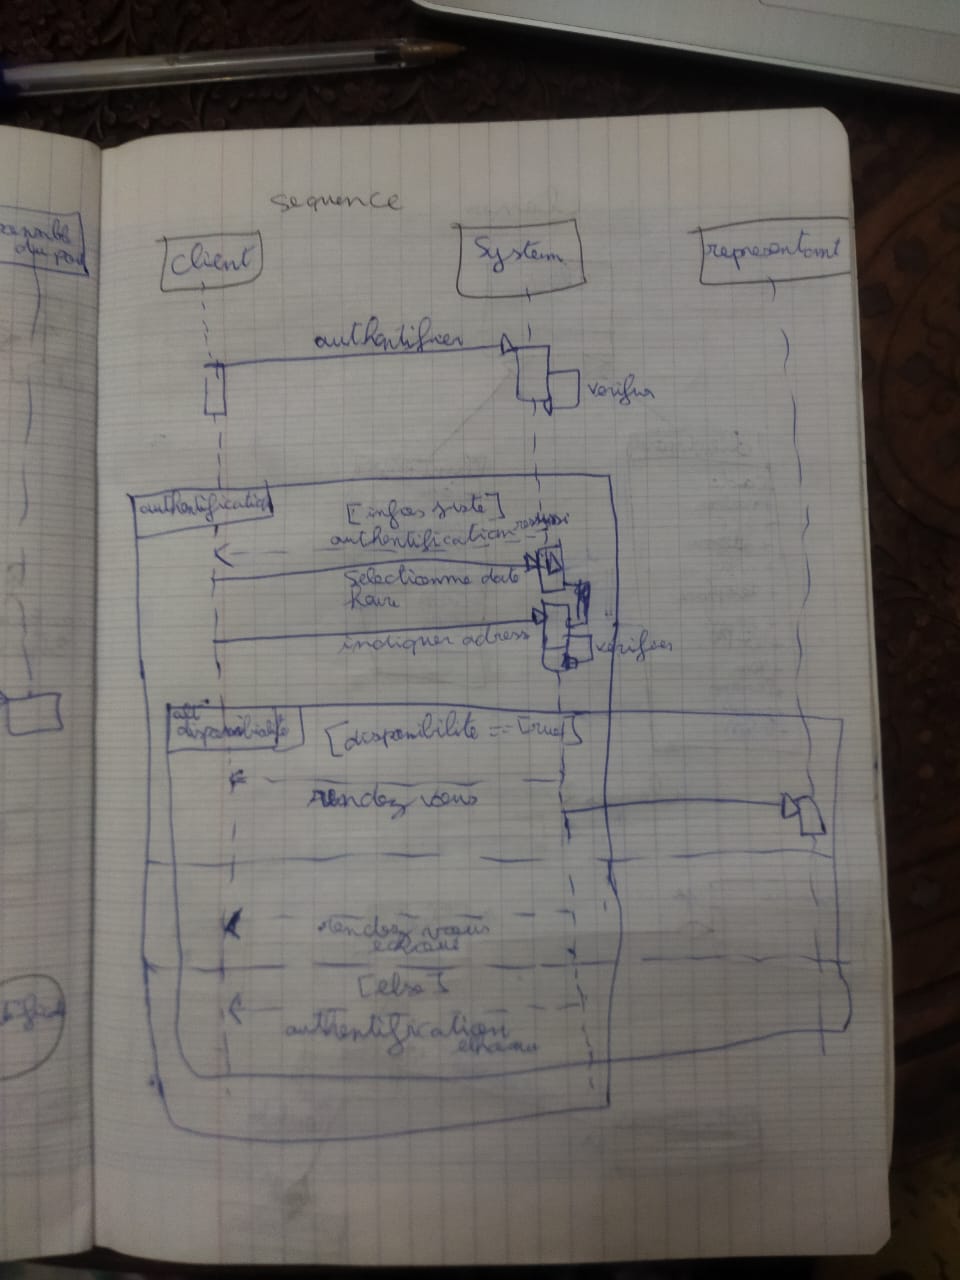 sequence
client
System
representant
authentifier
verifier
authentification
[infos juste]
authentification reussi
Selectionne date
heure
indiquer adress
verifier
alt
disponibialite
[disponibilite == True]
rendez vous
rendez vous
echoue
[else]
authentification
echoue